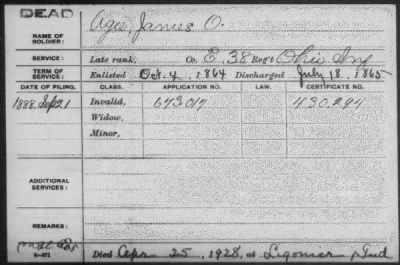 DEAD
NAME OF SOLDIER: Agee, James O.
SERVICE: Late rank, Co. E, 38 Reg't Ohio Inf
TERM OF SERVICE: Enlisted Oct. 4, 1864 Discharged July 18, 1865
DATE OF FILING. CLASS. APPLICATION NO. LAW. CERTIFICATE NO.
1888. Sep 21 Invalid, 673017 430.294
Widow,
Minor,
ADDITIONAL SERVICES:
REMARKS:
Died Apr 25, 1928, at Ligonier, Ind